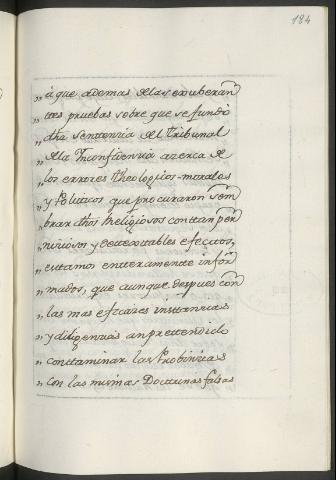 184
„ à que ademas de las exuberan
„ tes pruebas sobre que se fundò
„ dha sentencia del tribunal
„ de la Inconfidencia azerca de
„ los errores theologicos-morales
„ y Politicos que procuraron sem
„ brar dhos Religiosos con tan per
„ niciosos y detextables efectos,
„ estamos enteramente infor
„ mados, que aunque despues con
„ las mas eficaces instancias
„ y diligencias an prettendido
„ conttaminar las Probincias
„ con las mismas Doctrinas falsas